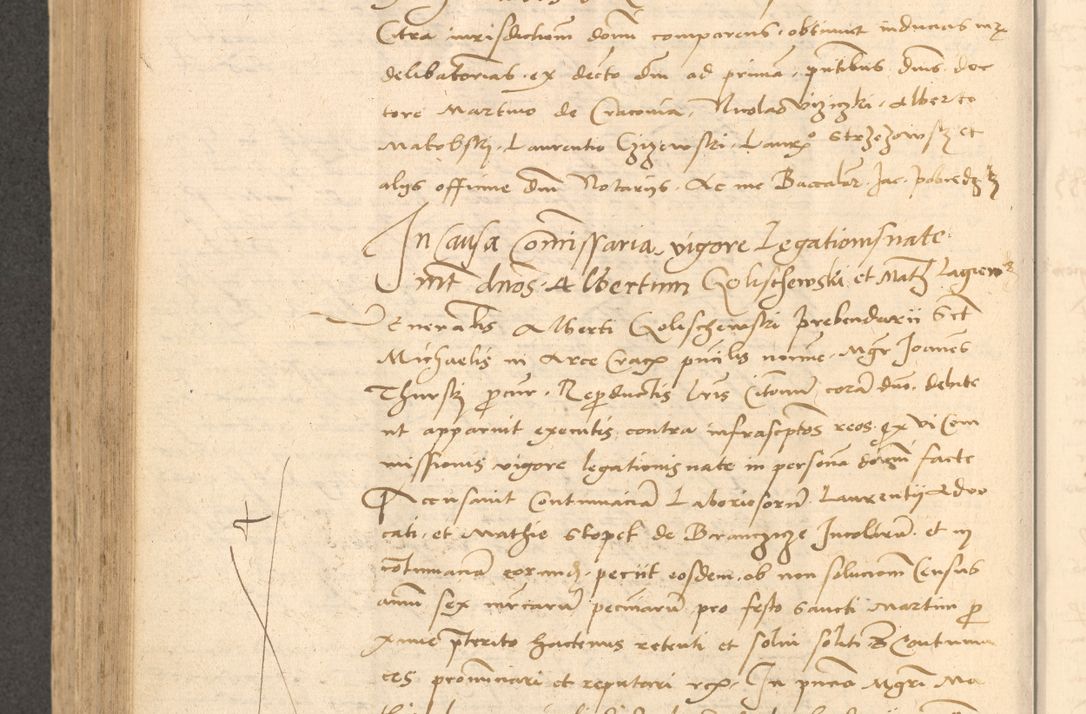 Citra iurisdictionem domini comparens obtinuit inducias
deliberatorias ex decto dni ad primam, pntibus dnis doc
tore Martino de Cracovia, Nicolao Viziczki, Alberto
Makobsky, Laurentio Czizewski, Laurº Strzezowsky et
alys officine dni Notarys. Ac me Baccalor. Jac.
In Causa Comissaria, vigore Legationis nate
int dnos Albertum Golischewski et Math
Venerabilis Alberti Golischewski Prebendarii Scti
Michaelis in Arce Cracx pncilis nomine Mgr Joannes
Thurski procur. Reproductis lris Citonum coram dno. debite
ut apparuit executis contra infrascptos reos ex vi Com
missionis vigore legationis nate in persona facte
Accusavit Contumaciam Laboriosorum Laurentij Advo
cati, et Mathie Stopek de Incolarum, et in
contumaciam eorundem peciit eosdem ob non solucionem Census
annui sex mrcarum pecuniarum pro festo Sancti Martini
xime pterito hactenus retenti et solui soliti
ces pronunciari et reputari rcx. In pncia Mgri Ma